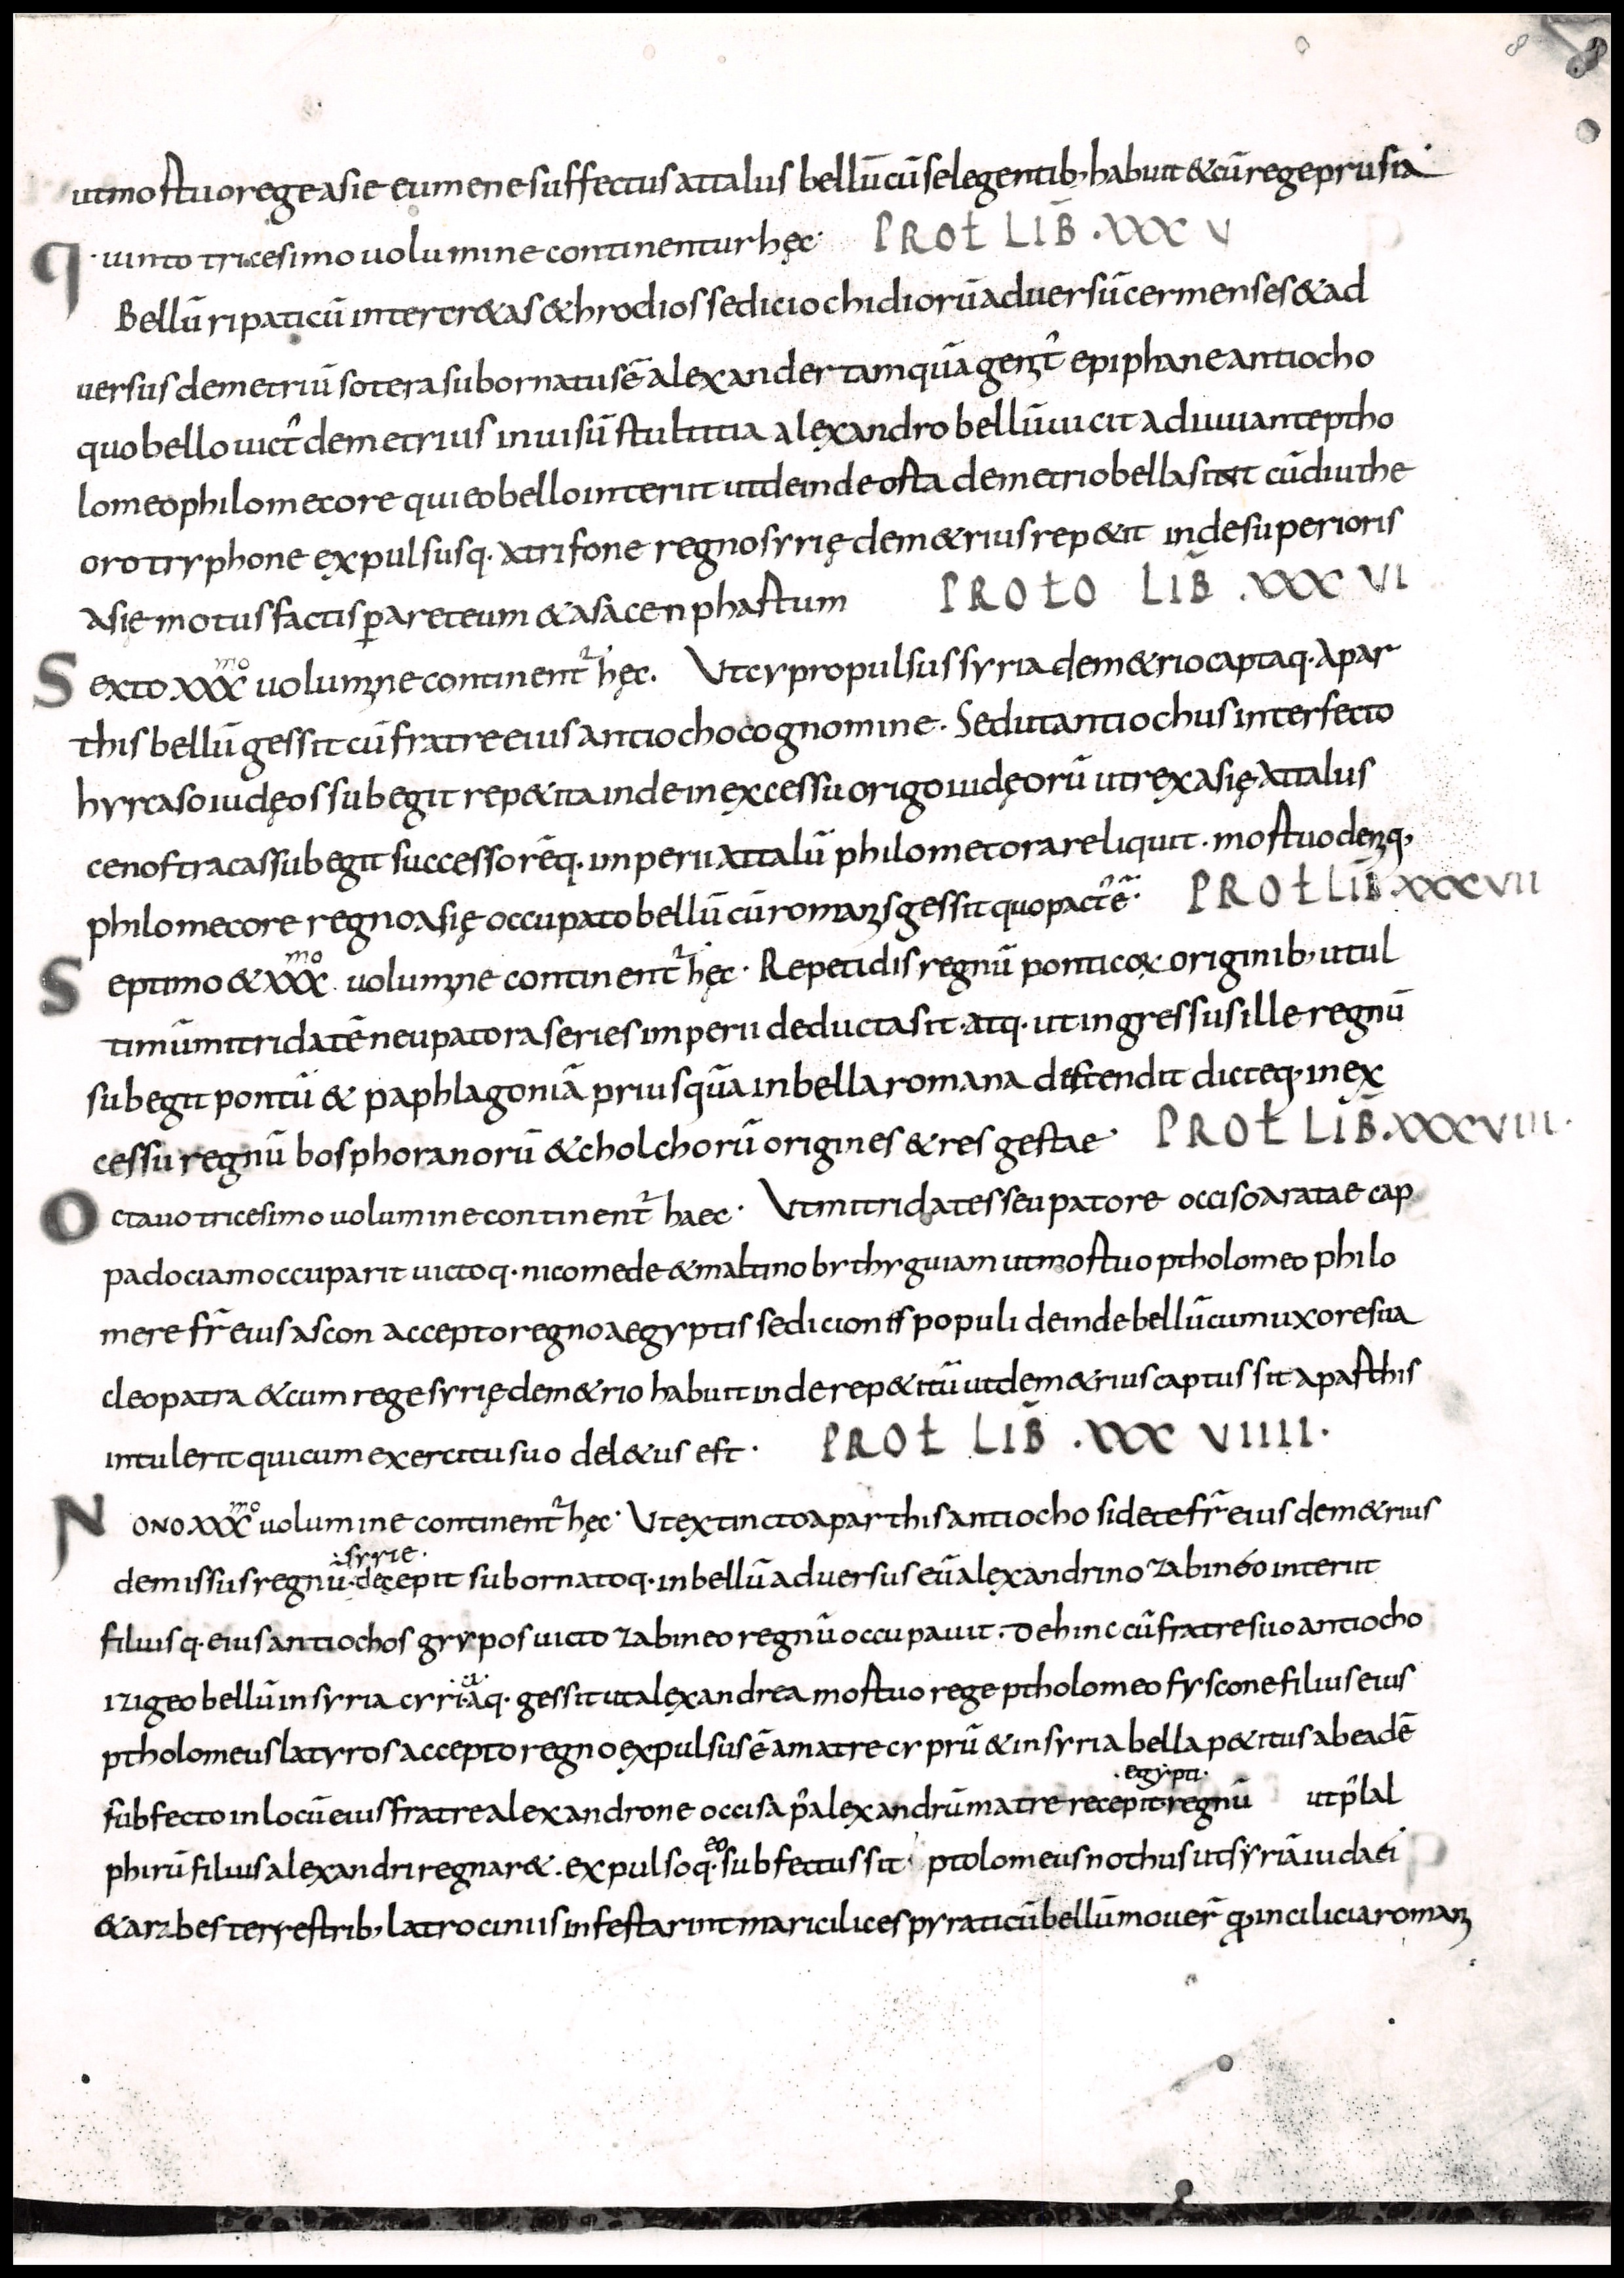 8 8
utmoſtuo rege asie eumene suffectus attalus bellū cū selegentib; habuit & cū rege prusia·
Q·uinto tricesimo uolumine continentur hęc· PROŁ LIB̄ ·XXXV
Bellū ripaticū inter cr&as & hrodios sedicio chidiorū aduersū cermenses & ad
uersus demetriū sotera subornatus ē alexander tamquā genit᷒ epiphane antiocho
quo bello uict᷒ demetrius inuisū stultitia alexandro bellū uicit adiuuante ptho
lomeo philometore qui eo bello interiit ut deinde osta demetrio bella sint cū diuthe
oro tryphone expulsusq· a trifone regno syrię dem&rius rep&it inde superioris
asię motus factis p̱ areteum & asacen phastum PROŁO LIB̄ ·XXXVI
Sexto XXXmo uolumine continent᷒ hęc. Ut cypro pulsus syria dem&rio captaq· a par
this bellū gessit cū fratre eius antiocho cognomine. Sed ut antiochus interfecto
hyrcaso iudęos subegit rep&ita inde in excessu origo iudęorū ut rex asię attalus
cenostracas subegit successorēq· imperii attalū philometora reliquit. mostuo deniq;
philometore regno asię occupato bellū cū romanis gessit quo pact᷒ ē· PROŁ LIB̄ ·XXXVII
Septimo & XXXmo uolumine continent᷒ hęc· Repetidis regnū ponticoꝝ originib; ut ul
timū mitridatē neupatora series imperii deducta sit. atq· ut ingressus ille regnū
subegit pontū & paphlagoniā priusquā in bella romana descendit dicteq· in ex
cessu regnū bosphoranorū & cholchorū origines & res gestae· PROŁ LIB̄·XXXVIII·
Octauo tricesimo uolumine continent᷒ haec· Ut mitridates seupatore occiso aratae cap
padociam occuparit uictoq· nicomede & maltino brthyguiam ut mostuo ptholomeo philo
mere fr̄ eius ascon accepto regno aegyptis sediciones populi deinde bellū cum uxore sua
cleopatra & cum rege syrię dem&rio habuit inde rep&itū ut dem&rius captus sit a pasthis
intulerit qui cum exercitu suo del&us est· PROŁ LIB̄ ·XXXVIIII·
NONO XXXmo uolumine continent᷒ hęc· Ut extincto a parthis antiocho sidete fr̄ eius dem&rius
·syrie·
demissus regnū·decepit subornatoq· in bellū aduersus eū alexandrino zabineo interiit
filiusq· eius antiochos grypos uicto zabineo regnū occupauit· Dehinc cū fratre suo antiocho
izigeo bellū in syria cyriaq· gessit ut alexandrea mostuo rege ptholomeo fyscone filius eius
ptholomeus latyros accepto regno expulsus ē a matre cyprū & in syria bella p&itus ab eadē
·egypti·
subfecto in locū eius fratre alexandrone occisa p̄ alexandrū matre recepit regnū ut p̄ lal
eo
phirū filius alexandri regnar&. expulsoq· subfectus sit ptolomeus nothus ut syriā iudaei
& arabes terrestrib; latrociniis infestarint mari cilices pyraticū bellū mouer̄ ꝙ in cilicia roman